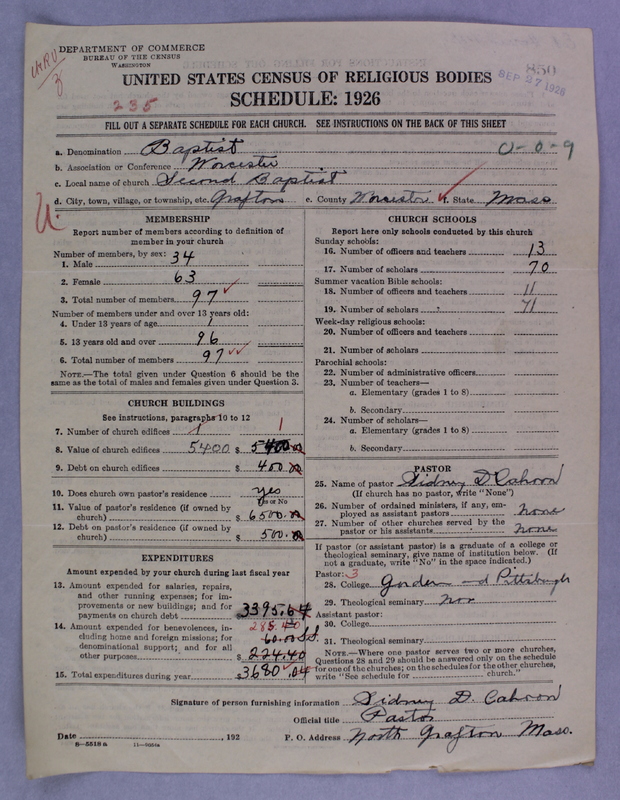 DEPARTMENT OF COMMERCE
BUREAU OF THE CENSUS
WASHINGTON
850
SEP 27 1926
UNITED STATES CENSUS OF RELIGIOUS BODIES
SCHEDULE: 1926
235
FILL OUT A SEPARATE SCHEDULE FOR EACH CHURCH. SEE INSTRUCTIONS ON THE BACK OF THIS SHEET
a. Denomination Baptist
0-0-9
b. Association or Conference Worcester
c. Local name of church Second Baptist
d. City, town, village, or township, etc. Grafton e. County Worcester f. State Mass
MEMBERSHIP
Report number of members according to definition of
member in your church
Number of members, by sex:
1. Male 34
2. Female 63
3. Total number of members 97
Number of members under and over 13 years old:
4. Under 13 years of age 1
5. 13 years old and over 96
6. Total number of members 97
NOTE.—The total given under Question 6 should be
the same as the total of males and females given under Question 3.
CHURCH BUILDINGS
See instructions, paragraphs 10 to 12
7. Number of church edifices 1 1
8. Value of church edifices 5400 $ 5400.00
9. Debt on church edifices $ 400.00
10. Does church own pastor's residence yes
Yes or No
11. Value of pastor's residence (if owned by
church) $ 6500.00
12. Debt on pastor's residence (if owned by
church) $ 500.00
EXPENDITURES
Amount expended by your church during last fiscal year
13. Amount expended for salaries, repairs,
and other running expenses; for im-
provements or new buildings; and for
payments on church debt 3395.64
285.40
14. Amount expended for benevolences, in-
cluding home and foreign missions; for
denominational support; and for all
other purposes
60.00 S.S.
$ 224.40
15. Total expenditures during year $ 3680.04
CHURCH SCHOOLS
Report here only schools conducted by this church
Sunday schools:
16. Number of officers and teachers 13
17. Number of scholars 70
Summer vacation Bible schools:
18. Number of officers and teachers 11
19. Number of scholars 71
Week-day religious schools:
20. Number of officers and teachers
21. Number of scholars
Parochial schools:
22. Number of administrative officers
23. Number of teachers—
a. Elementary (grades 1 to 8)
b. Secondary
24. Number of scholars—
a. Elementary (grades 1 to 8)
b. Secondary
PASTOR
25. Name of pastor Sidney D Cahoon
(If church has no pastor, write "None")
26. Number of ordained ministers, if any, em-
ployed as assistant pastors none
27. Number of other churches served by the
pastor or his assistants none
If pastor (or assistant pastor) is a graduate of a college or
theological seminary, give name of institution below. (If
not a graduate, write "No" in the space indicated.)
Pastor: 3
28. College Gordon and Pittsburgh
29. Theological seminary
Assistant pastor:
30. College
31. Theological seminary
NOTE.—Where one pastor serves two or more churches,
Questions 28 and 29 should be answered only on the schedule
for one of the churches; on the schedules for the other churches,
write "See schedule for church."
Signature of person furnishing information Sidney D. Cahoon
Official title Pastor
Date , 192 P. O. Address North Grafton Mass.
8—5518a 11—9084a